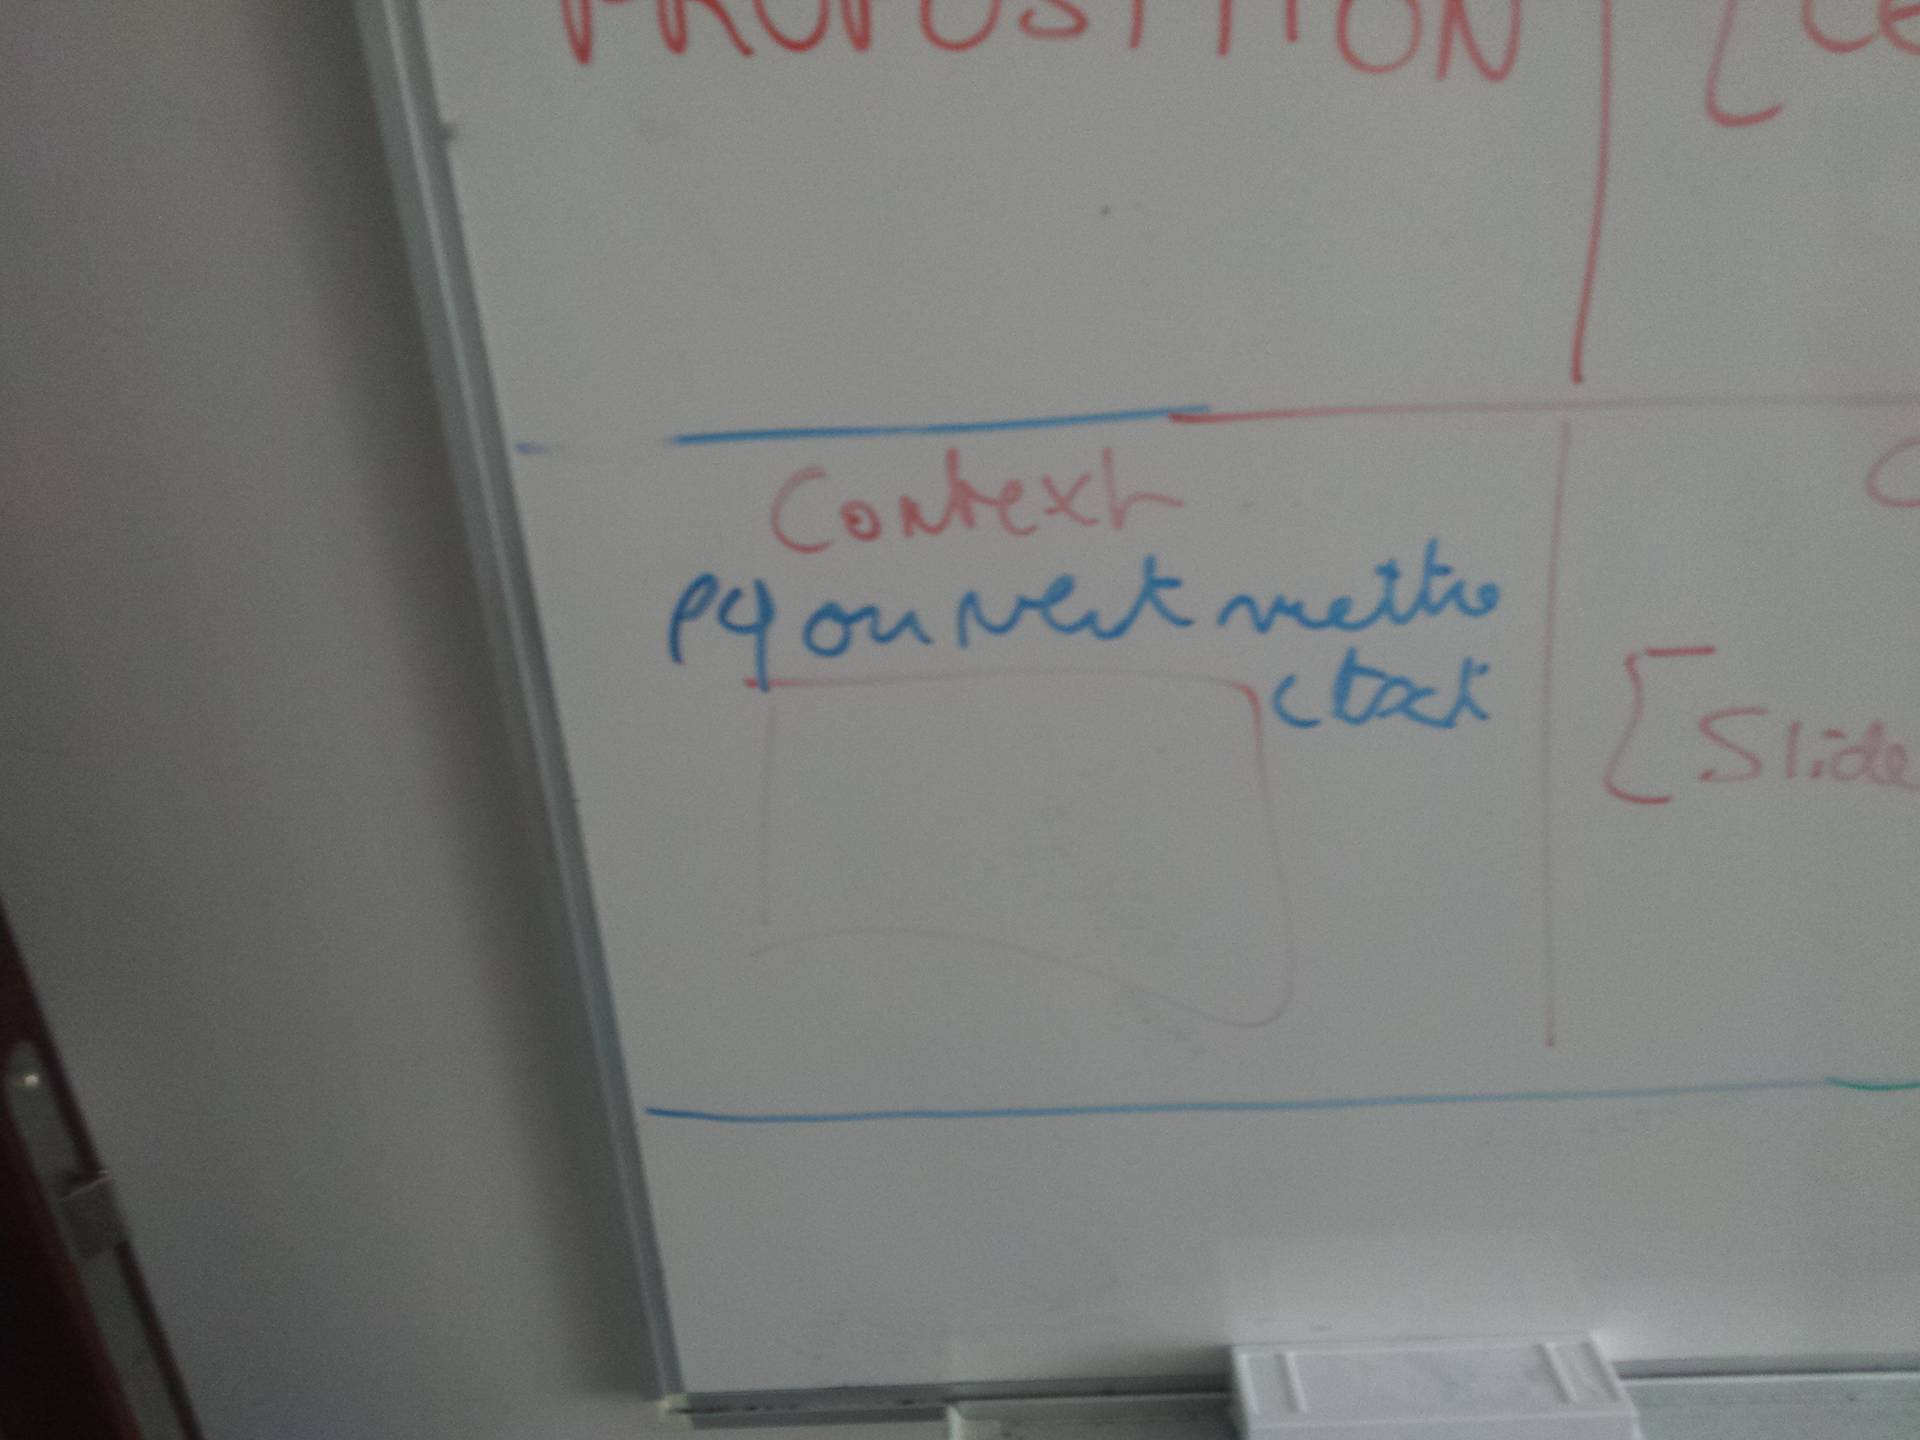 PROPOSITION
Context
on veut mettre
[Slide